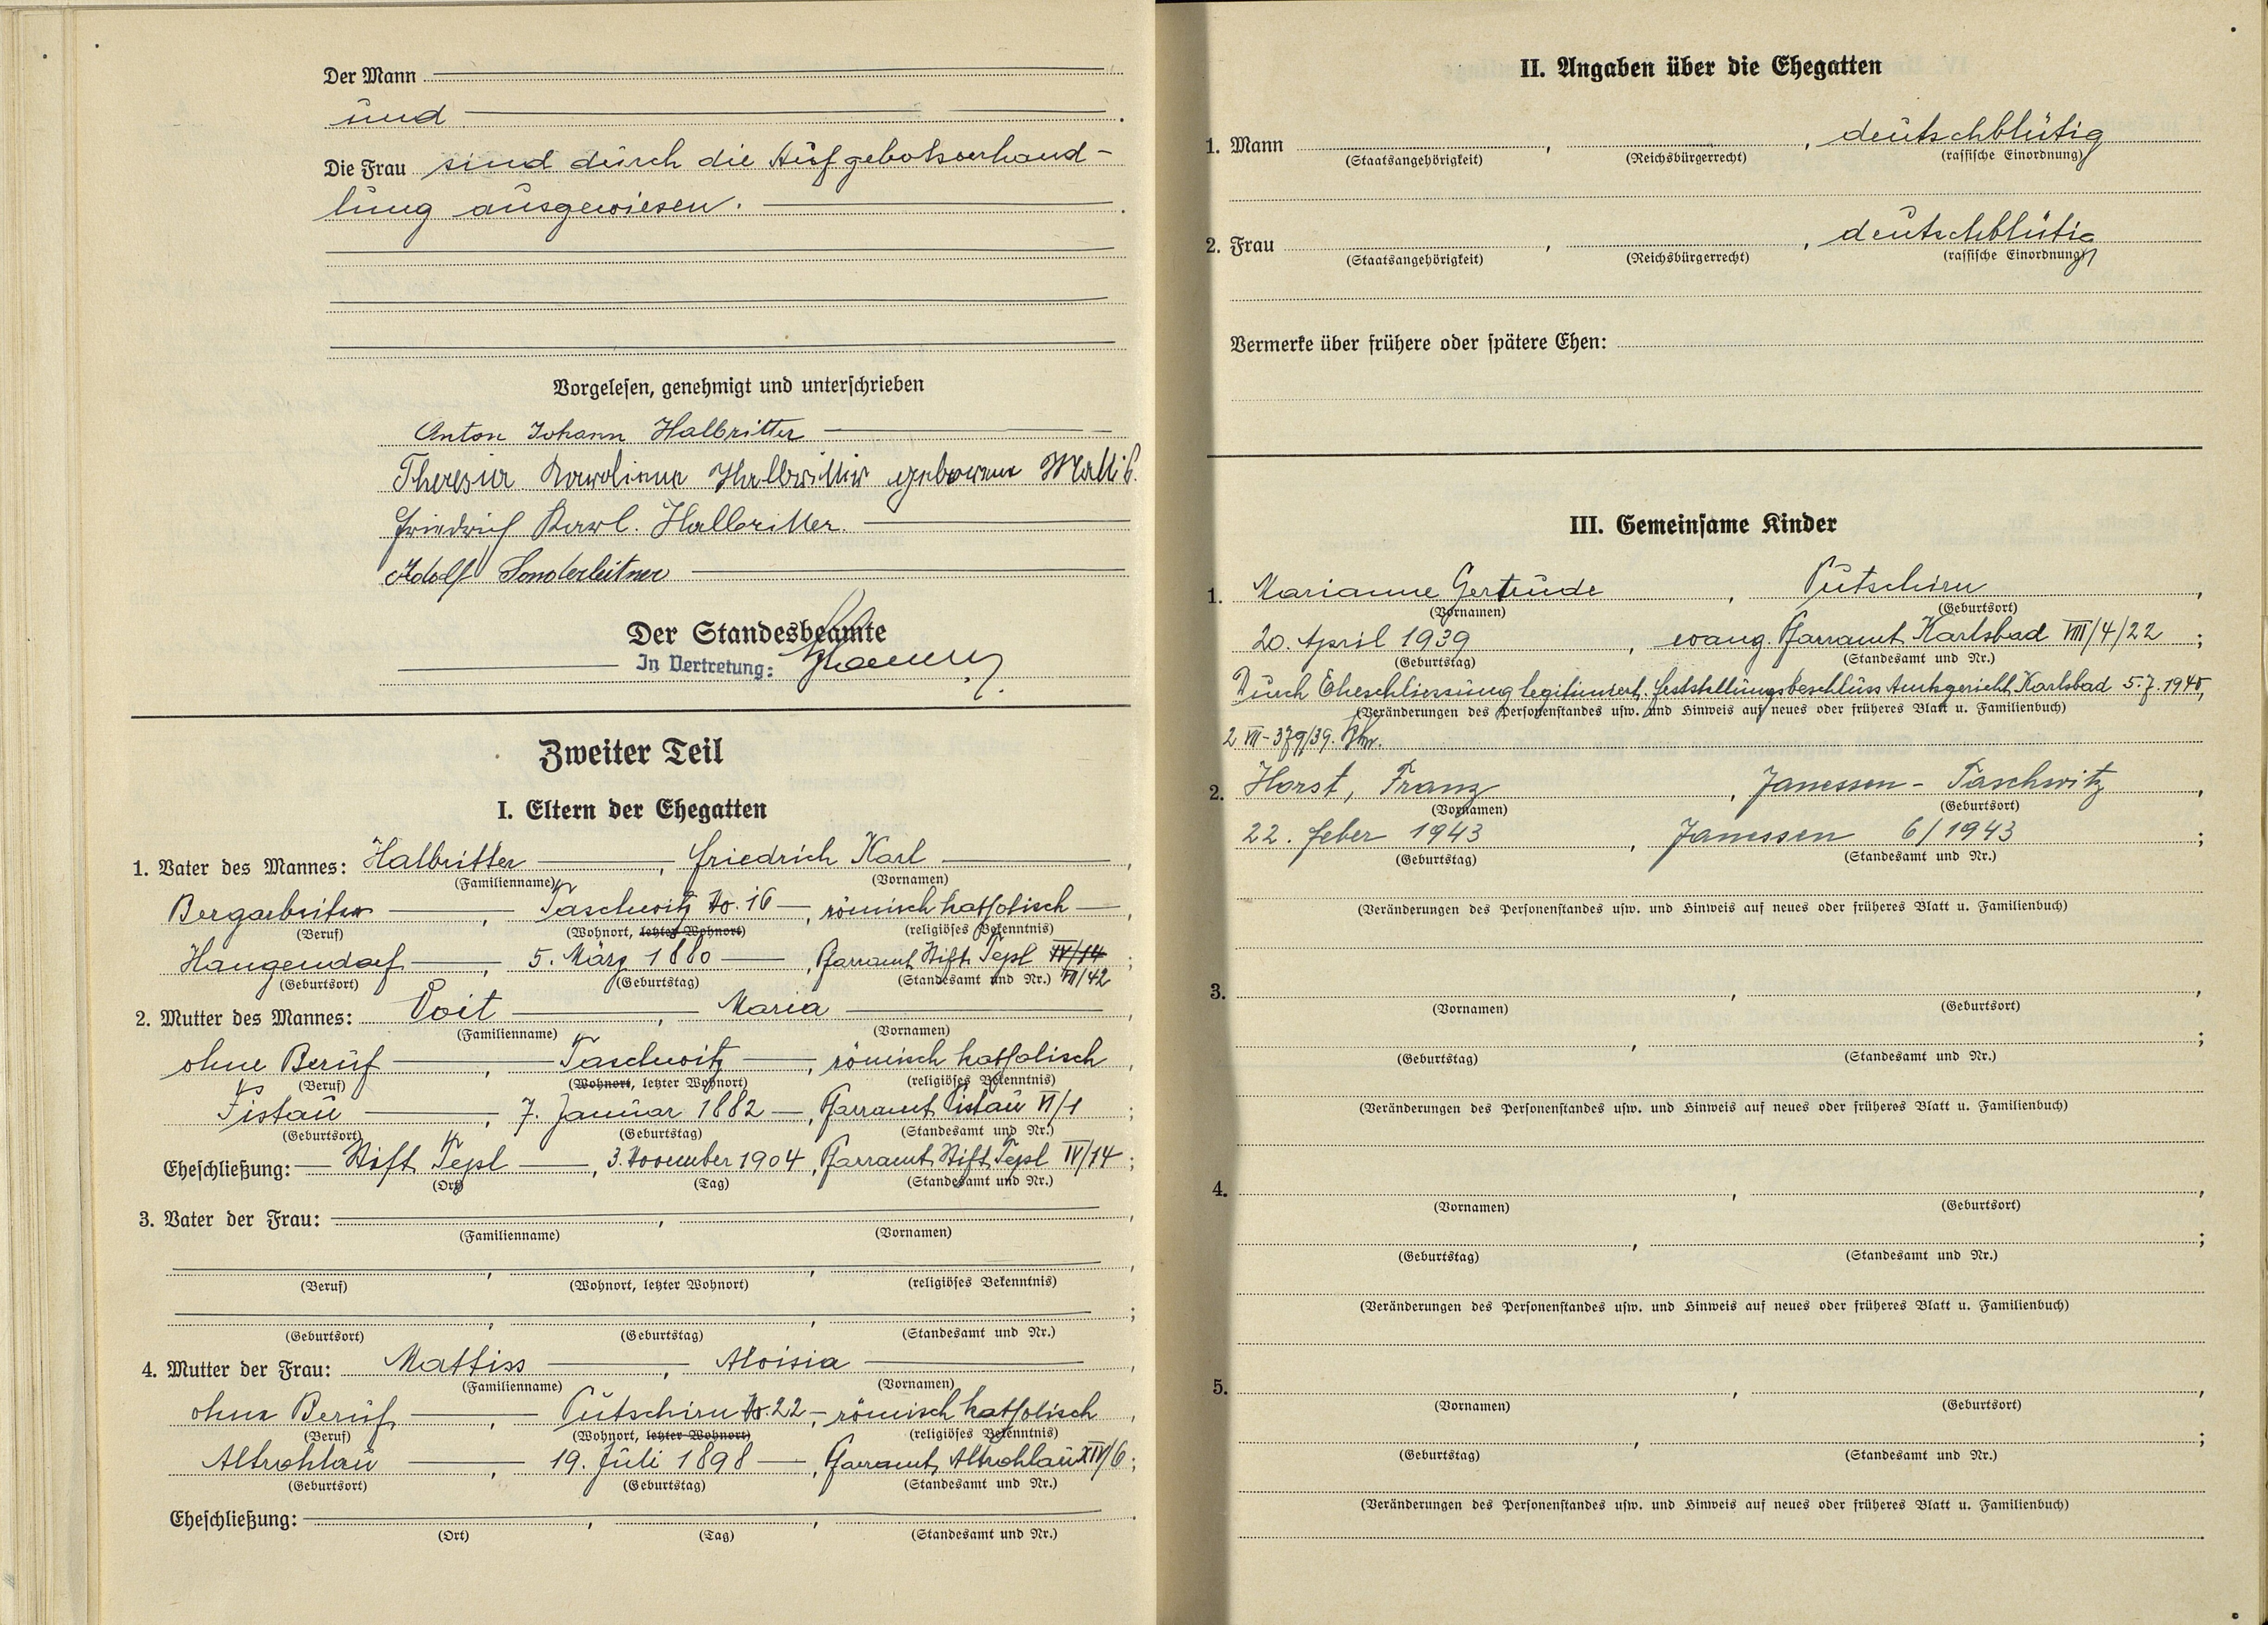 Der Mann
und
Die Frau sind durch die Aufgebotsverhand-
lung ausgewiesen.
Vorgelesen, genehmigt und unterschrieben
Anton Johann Halbritter
Theresia Karolina Halbritter geborene Mattiß.
Friedrich Karl. Halbritter.
Adolf Sonderleitner
Der Standesbeamte
In Vertretung:
Zweiter Teil
I. Eltern der Ehegatten
1. Vater des Mannes: Halbritter, Friedrich Karl,
(Familienname) (Vornamen)
Bergarbeiter, Taschwitz No. 16, römisch katholisch,
(Beruf) (Wohnort, letzter Wohnort) (religiöses Bekenntnis)
Hangendorf, 5. März 1880, Pfarramt Stift Tepl IV/14;
(Geburtsort) (Geburtstag) (Standesamt und Nr.) VII/42
2. Mutter des Mannes: Voit, Maria,
(Familienname) (Vornamen)
ohne Beruf, Taschwitz, römisch katholisch,
(Beruf) (Wohnort, letzter Wohnort) (religiöses Bekenntnis)
Pistau, 7. Januar 1882, Pfarramt Pistau VI/1;
(Geburtsort) (Geburtstag) (Standesamt und Nr.)
Eheschließung: Stift Tepl, 3. November 1904, Pfarramt Stift Tepl IV/14;
(Ort) (Tag) (Standesamt und Nr.)
3. Vater der Frau:
(Familienname) (Vornamen)
(Beruf) (Wohnort, letzter Wohnort) (religiöses Bekenntnis)
(Geburtsort) (Geburtstag) (Standesamt und Nr.)
4. Mutter der Frau: Mattiss, Aloisia,
(Familienname) (Vornamen)
ohne Beruf, Putschirn No. 22, römisch katholisch,
(Beruf) (Wohnort, letzter Wohnort) (religiöses Bekenntnis)
Altrohlau, 19. Juli 1898, Pfarramt Altrohlau XIV/6;
(Geburtsort) (Geburtstag) (Standesamt und Nr.)
Eheschließung:
(Ort) (Tag) (Standesamt und Nr.)
II. Angaben über die Ehegatten
1. Mann, , deutschblütig
(Staatsangehörigkeit) (Reichsbürgerrecht) (rassische Einordnung)
2. Frau, , deutschblütig
(Staatsangehörigkeit) (Reichsbürgerrecht) (rassische Einordnung)
Vermerke über frühere oder spätere Ehen:
III. Gemeinsame Kinder
1. Marianne Gertrude, Putschirn,
(Vornamen) (Geburtsort)
20. April 1939, evang. Pfarramt Karlsbad VIII/4/22;
(Geburtstag) (Standesamt und Nr.)
Durch Eheschliessung legitimiert. Feststellungsbeschluss Amtsgericht Karlsbad 5.7.1940,
(Veränderungen des Personenstandes usw. und Hinweis auf neues oder früheres Blatt u. Familienbuch)
2 VII-379/39.
2. Horst, Franz, Janessen - Taschwitz,
(Vornamen) (Geburtsort)
22. Feber 1943, Janessen 6/1943;
(Geburtstag) (Standesamt und Nr.)
(Veränderungen des Personenstandes usw. und Hinweis auf neues oder früheres Blatt u. Familienbuch)
3.
(Vornamen) (Geburtsort)
(Geburtstag) (Standesamt und Nr.)
(Veränderungen des Personenstandes usw. und Hinweis auf neues oder früheres Blatt u. Familienbuch)
4.
(Vornamen) (Geburtsort)
(Geburtstag) (Standesamt und Nr.)
(Veränderungen des Personenstandes usw. und Hinweis auf neues oder früheres Blatt u. Familienbuch)
5.
(Vornamen) (Geburtsort)
(Geburtstag) (Standesamt und Nr.)
(Veränderungen des Personenstandes usw. und Hinweis auf neues oder früheres Blatt u. Familienbuch)